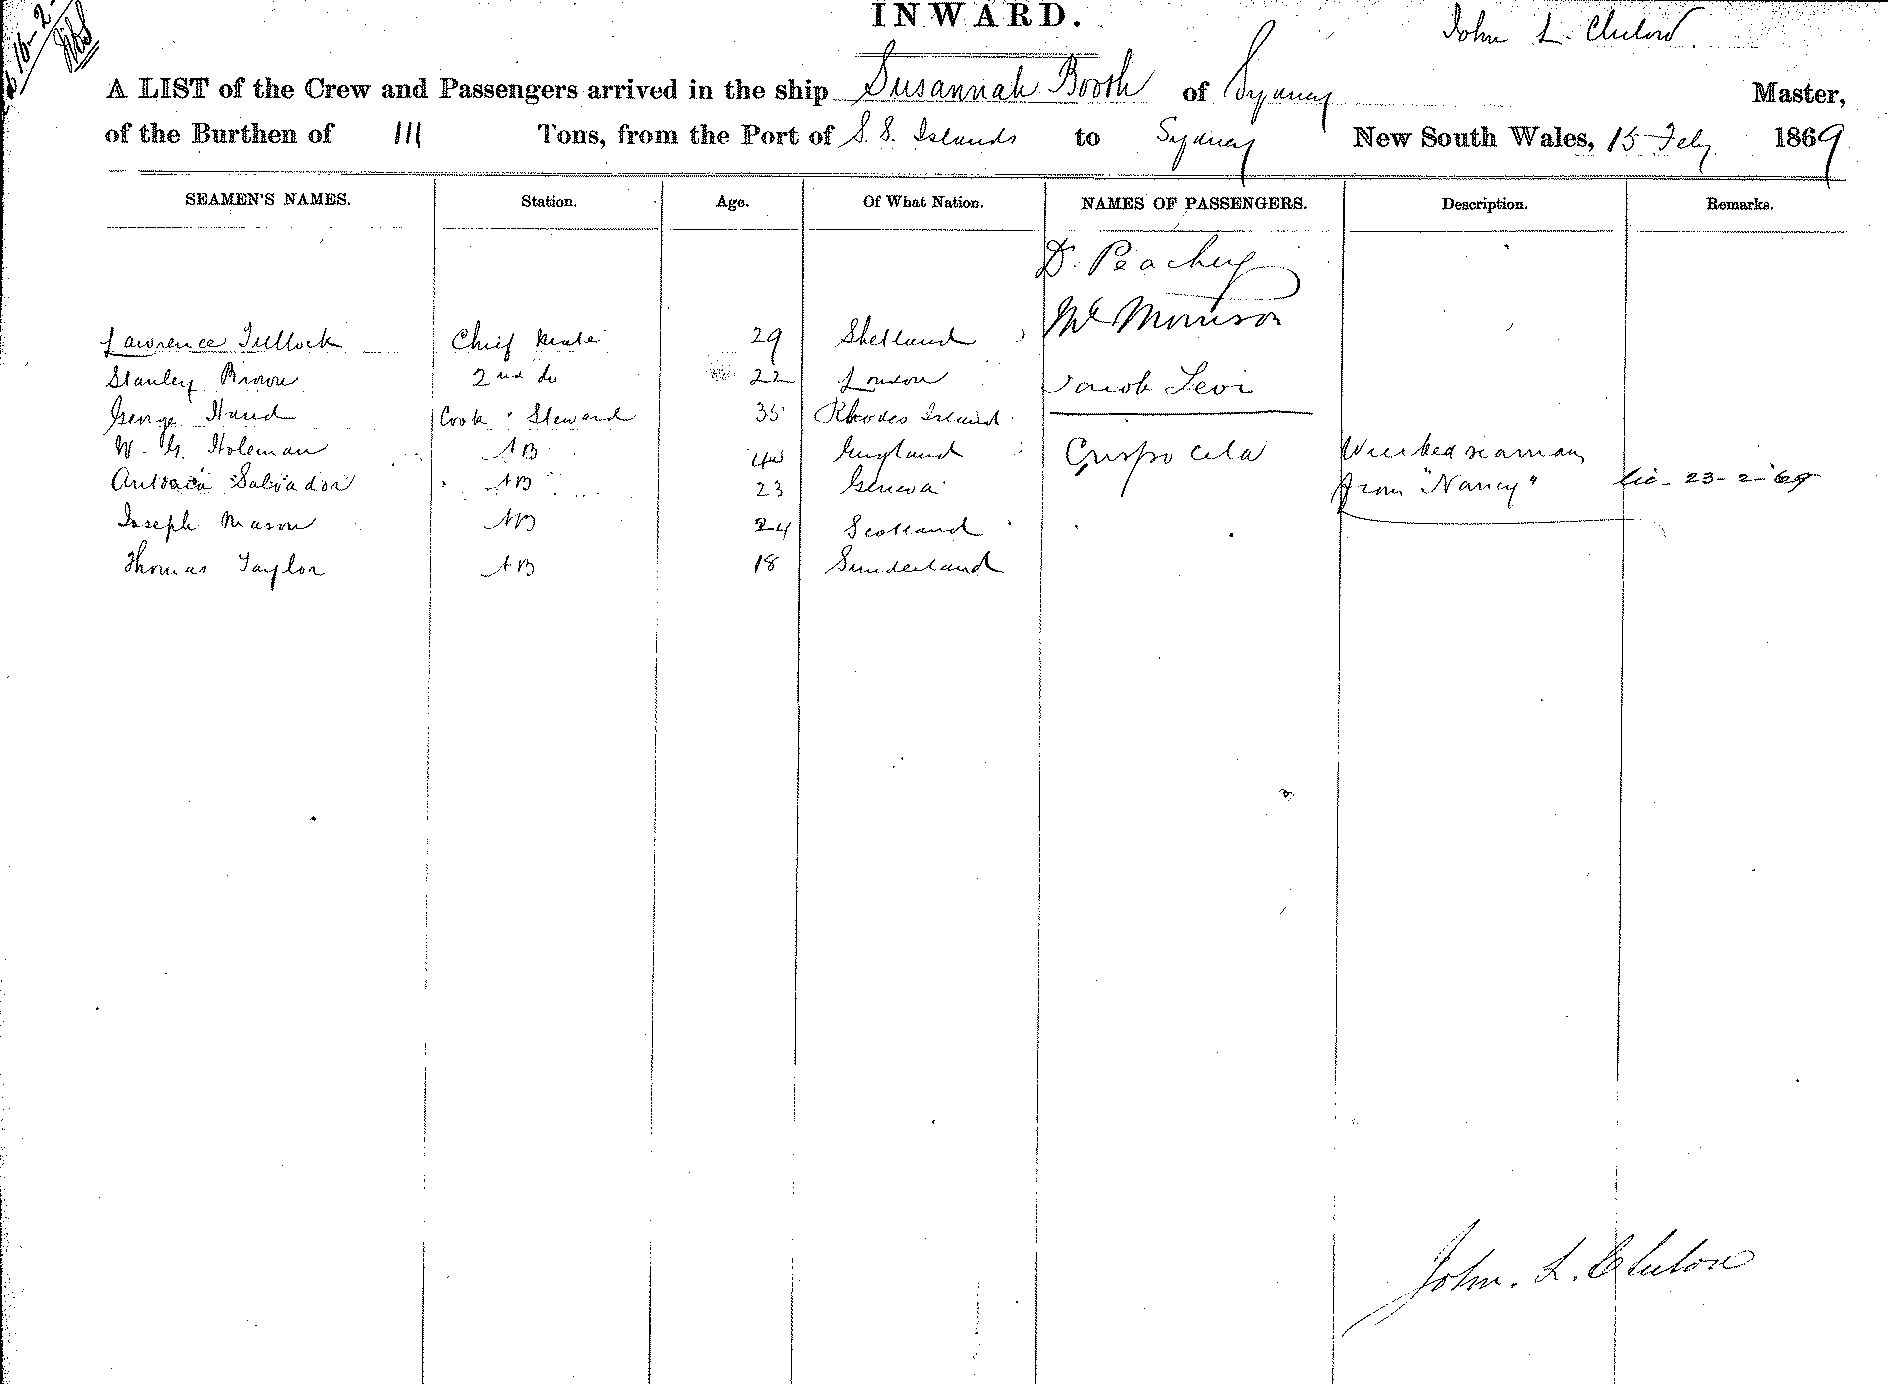 INWARD.
John L.
A LIST of the Crew and Passengers arrived in the ship Susannah Booth of Sydney Master,
of the Burthen of 111 Tons, from the Port of S. S. Islands to Sydney New South Wales, 15 Feby 1869
SEAMEN'S NAMES. Station. Age. Of What Nation. NAMES OF PASSENGERS. Description. Remarks.
D. Peachey
Mr Morrison
Lawrence Tullock Chief Mate 29 Shetland
Stanley Brown 2nd do 22 London Jacob Levi
George Hand Cook & Steward 35 Rhodes Island
W. G. Holeman AB 40 England Wrecked seaman
Salvador AB 23 Geneva from "Nancy" 23-2-69
Joseph Mason AB 24 Scotland
Thomas Taylor AB 18 Sunderland
John. L.